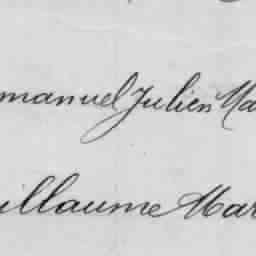 manuel Julien Ma
uillaume Mar